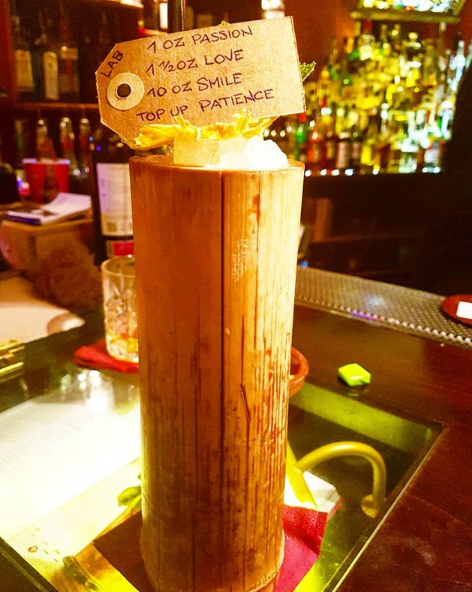 LAB
1 OZ PASSION
1 ½OZ LOVE
10 OZ SMILE
TOP UP PATIENCE